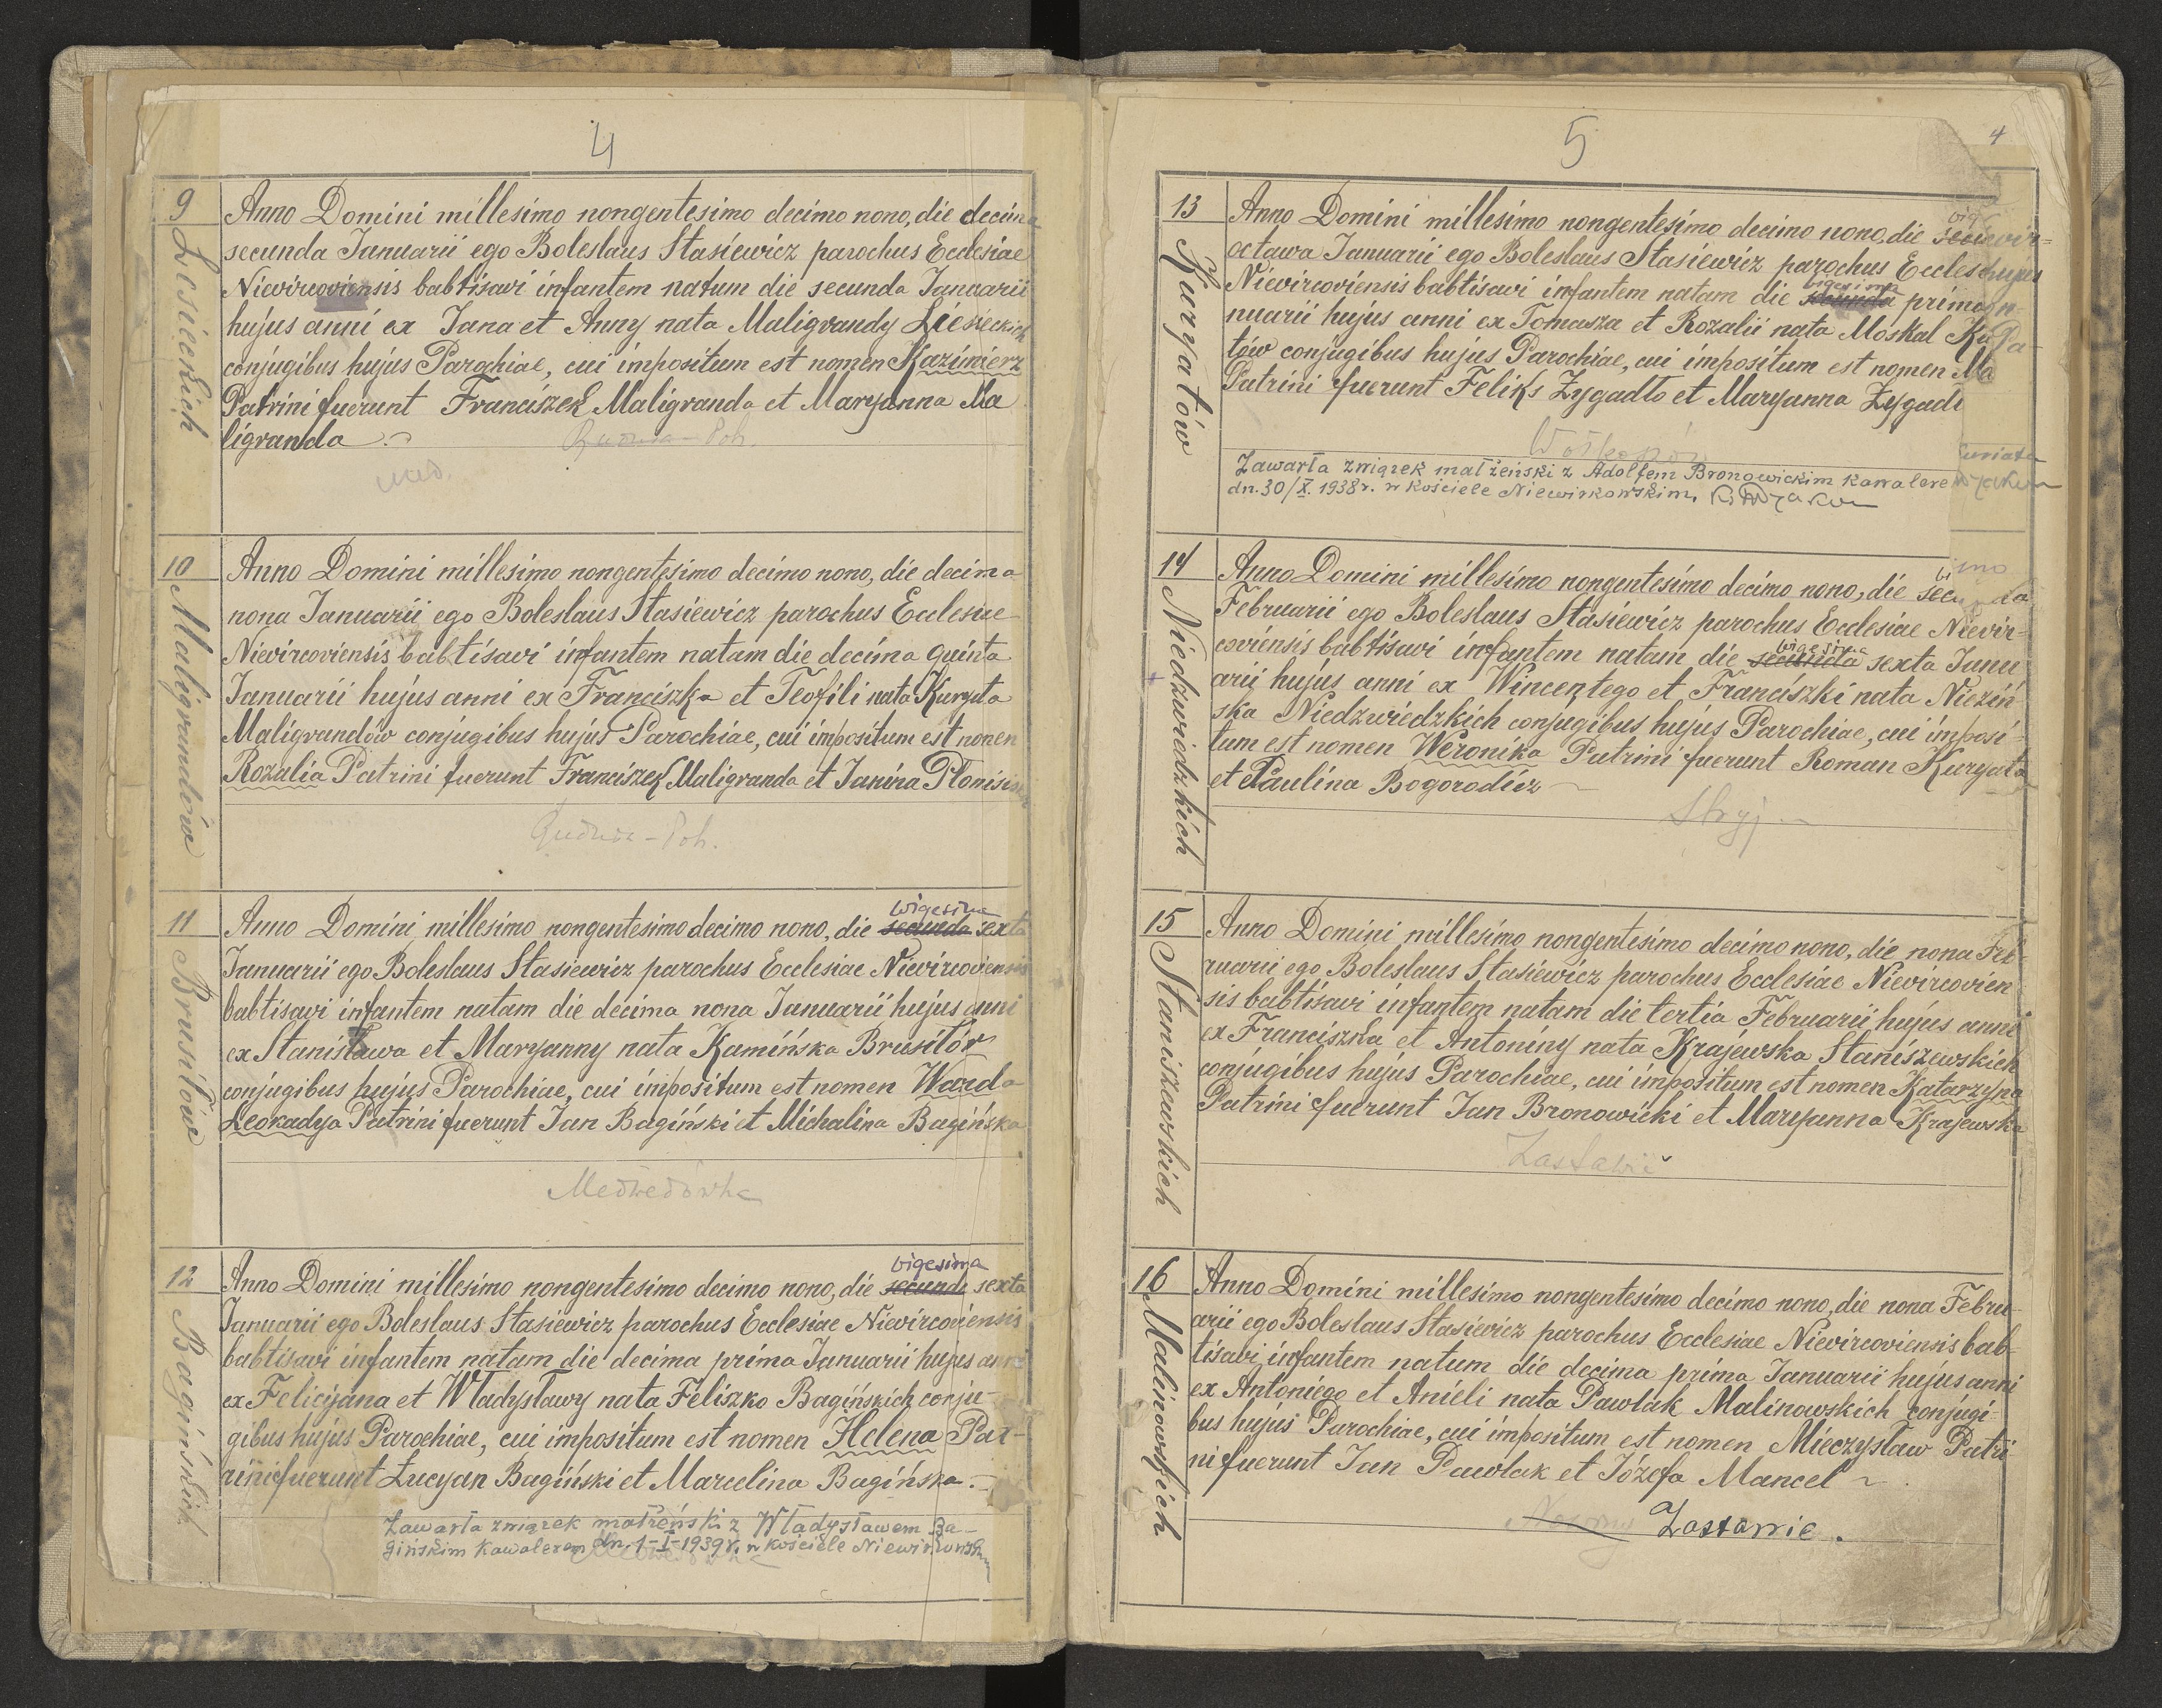 4
9
Lesieckich
Anno Domini millesimo nongentesimo decimo nono, die decima
secunda Januarii ego Boleslaus Stasiewicz parochus Ecclesiae
Nievircoviensis babtisavi infantem natum die secunda Januarii
hujus anni ex Jana et Anny nata Maligrandy
conjugibus hujus Parochiae, cui impositum est nomen Kazimierz
Patrini fuerunt Franciszek Maligranda et Maryanna Ma
ligranda
10
Maligrandów
Anno Domini millesimo nongentesimo decimo nono, die decima
nona Januarii ego Boleslaus Stasiewicz parochus Ecclesiae
Nievircoviensis babtisavi infantem natam die decima quinta
Januarii hujus anni ex Franciszka et Teofili nata Kuryata
Maligrandów conjugibus hujus Parochiae, cui impositum est nomen
Rozalia Patrini fuerunt Franciszek Maligranda et Janina
11
Brusiłów
Anno Domini millesimo nongentesimo decimo nono, die secunda vigesima sexta
Januarii ego Boleslaus Stasiewicz parochus Ecclesiae Nievircoviensis
babtisavi infantem natam die decima nona Januarii hujus anni
ex Stanisława et Maryanny nata Kamińska Brusiłów
conjugibus hujus Parochiae, cui impositum est nomen Wanda
Leokadya Patrini fuerunt Jan Bagiński et Michalina Bagińska
Medwedówka
12
Bagińskich
Anno Domini millesimo nongentesimo decimo nono, die secunda vigesima sexta
Januarii ego Boleslaus Stasiewicz parochus Ecclesiae Nievircoviensis
babtisavi infantem natam die decima prima Januarii hujus anni
ex Felicyana et Władysławy nata Feliszko Bagińskich conju-
gibus hujus Parochiae, cui impositum est nomen Helena Pat-
rini fuerunt Lucyan Bagiński et Marcelina Bagińska.
Zawarła związek małżeński z Władysławem Ba-
gińskim kawalerem dn. 1-I-1939 r. w kościele Niewirkowskim
5
4
13
Kuryatów
Anno Domini millesimo nongentesimo decimo nono, die
octawa Januarii ego Boleslaus Stasiewicz parochus
Nievircoviensis babtisavi infantem natam die secunda vigesima prima
nuarii hujus anni ex Tomasza et Rozalii nata Moskal
tów conjugibus hujus Parochiae, cui impositum est nomen
Patrini fuerunt Feliks Zygadło et Maryanna
Zawarła związek małżeński z Adolfem Bronowickim
dn. 30/X. 1938 r. w kościele Niewirkowskim,
14
Niedzwiedzkich
Anno Domini millesimo nongentesimo decimo nono, die
Februarii ego Boleslaus Stasiewicz parochus Ecclesiae Nievir-
coviensis babtisavi infantem natam die secunda vigesima sexta Janu
arii hujus anni ex Wincentego et Franciszki nata Nieziń-
ska Niedzwiedzkich conjugibus hujus Parochiae, cui imposi-
tum est nomen Weronika Patrini fuerunt Roman Kuryata
et Paulina Bogorodicz
Stryj
15
Staniszewskich
Anno Domini millesimo nongentesimo decimo nono, die nona Feb-
ruarii ego Boleslaus Stasiewicz parochus Ecclesiae Nievircovien
sis babtisavi infantem natam die tertia Februarii hujus anni
ex Franciszka et Antoniny nata Krajewska Staniszewskich
conjugibus hujus Parochiae, cui impositum est nomen Katarzyna
Patrini fuerunt Jan Bronowicki et Maryanna Krajewska
16
Malinowskich
Anno Domini millesimo nongentesimo decimo nono, die nona Febru-
arii ego Boleslaus Stasiewicz parochus Ecclesiae Nievircoviensis bab-
tisavi infantem natum die decima prima Januarii hujus anni
ex Antoniego et Anieli nata Pawlak Malinowskich conjugi-
bus hujus Parochiae, cui impositum est nomen Mieczysław Patri
ni fuerunt Jan Pawlak et Józefa Mancel
Zastawie.